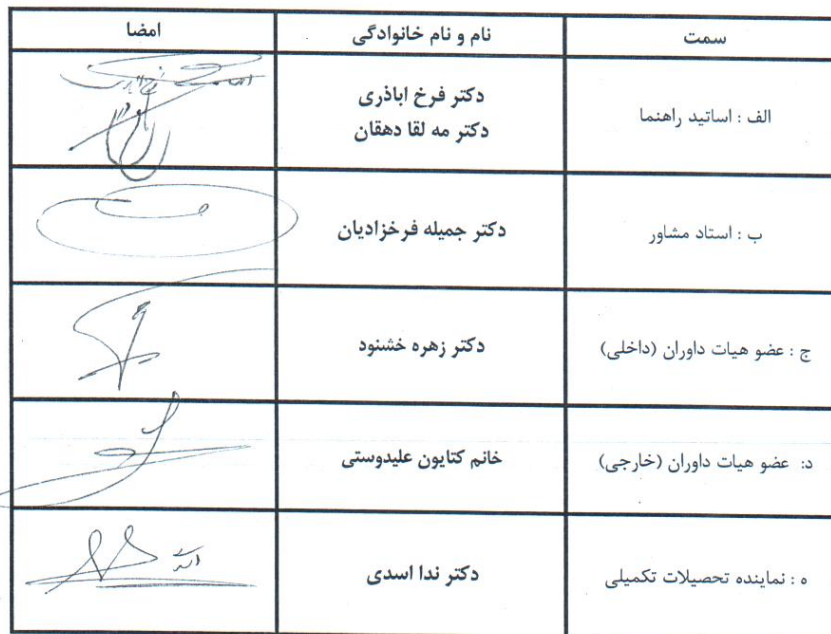 سمت نام و نام خانوادگی امضا
الف : اساتید راهنما
دکتر فرخ اباذری
دکتر مه لقا دهقان
ب : استاد مشاور دکتر جمیله فرخزادیان
ج : عضو هیات داوران (داخلی) دکتر زهره خشنود
د: عضو هیات داوران (خارجی) خانم کتایون علیدوستی
ه : نماینده تحصیلات تکمیلی دکتر ندا اسدی